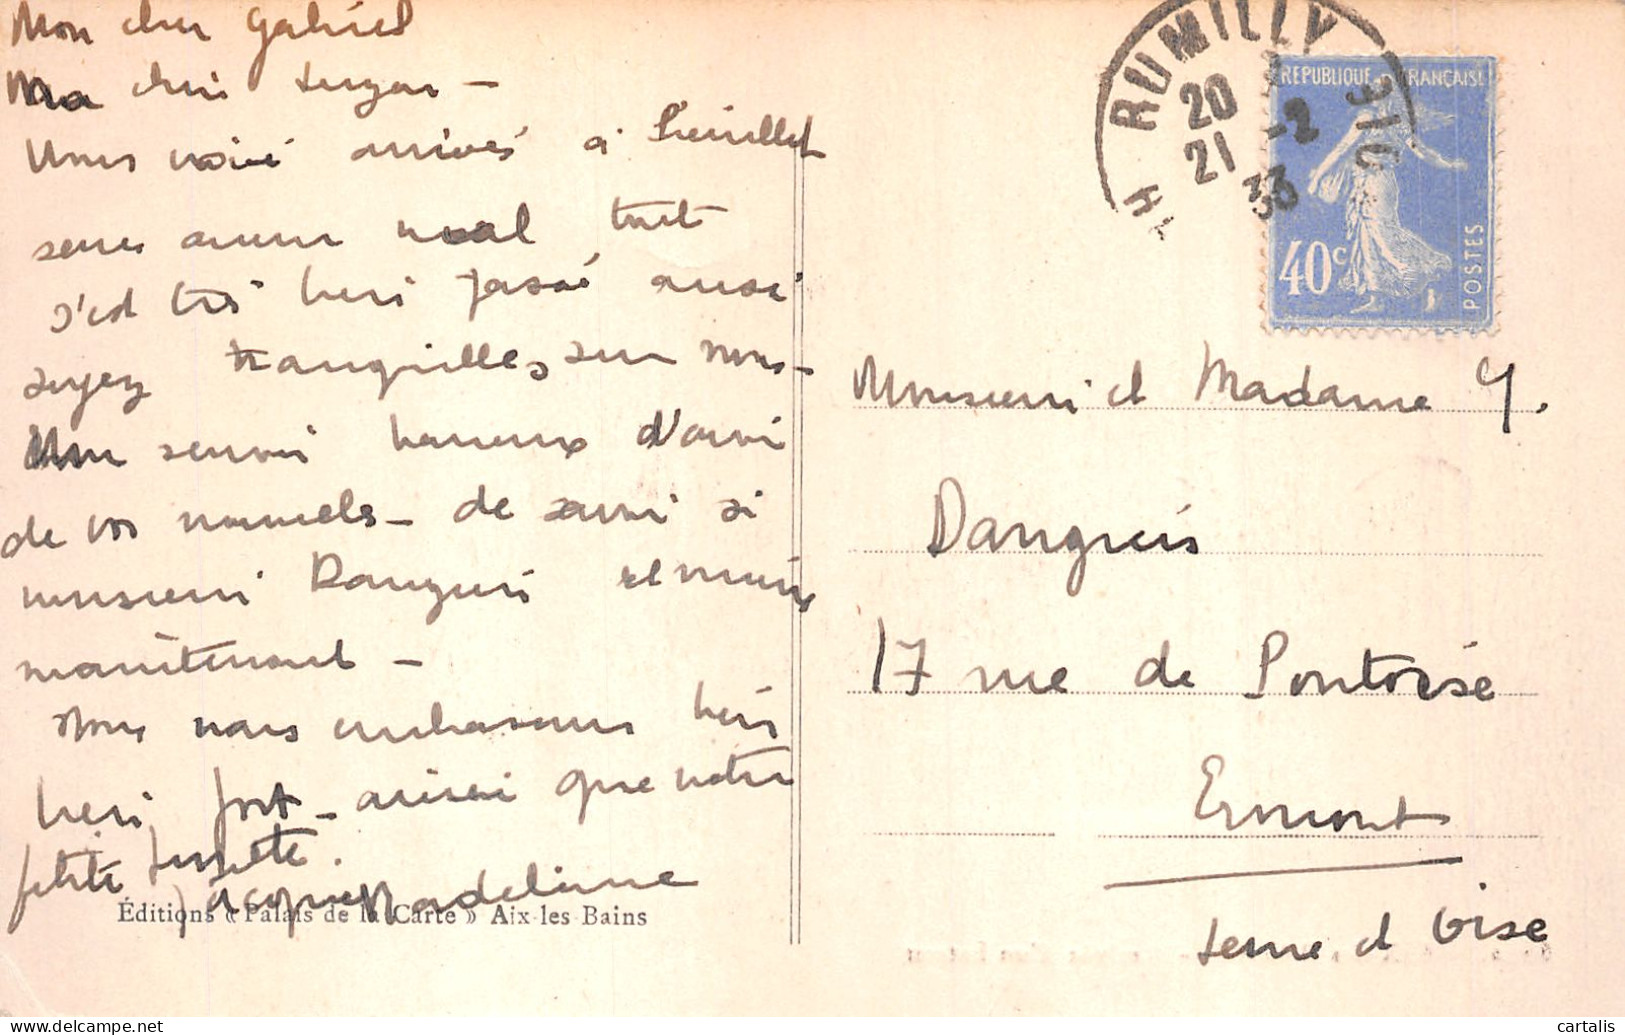 Mon cher Gabriel
Ma chère Suzon -
Nous voici arrivés à
sans aucun mal tout
s'est très bien passé aussi
soyez tranquilles, sur nous -
serons heureux d'avoir
de vos nouvels - de savoir si
monsieur Danguis est mieux
maintenant -
Nous vous embrassons bien
bien fort - ainsi que votre
petite
Jacques Madeleine
Éditions « Palais de la Carte » Aix-les-Bains
RUMILLY
20 -2
21 33
Hte
OIE
REPUBLIQUE FRANÇAISE
40c
POSTES
Monsieur et Madame G.
Danguis
17 rue de Pontoise
Ermont
Seine et Oise
cartalis
www.delcampe.net